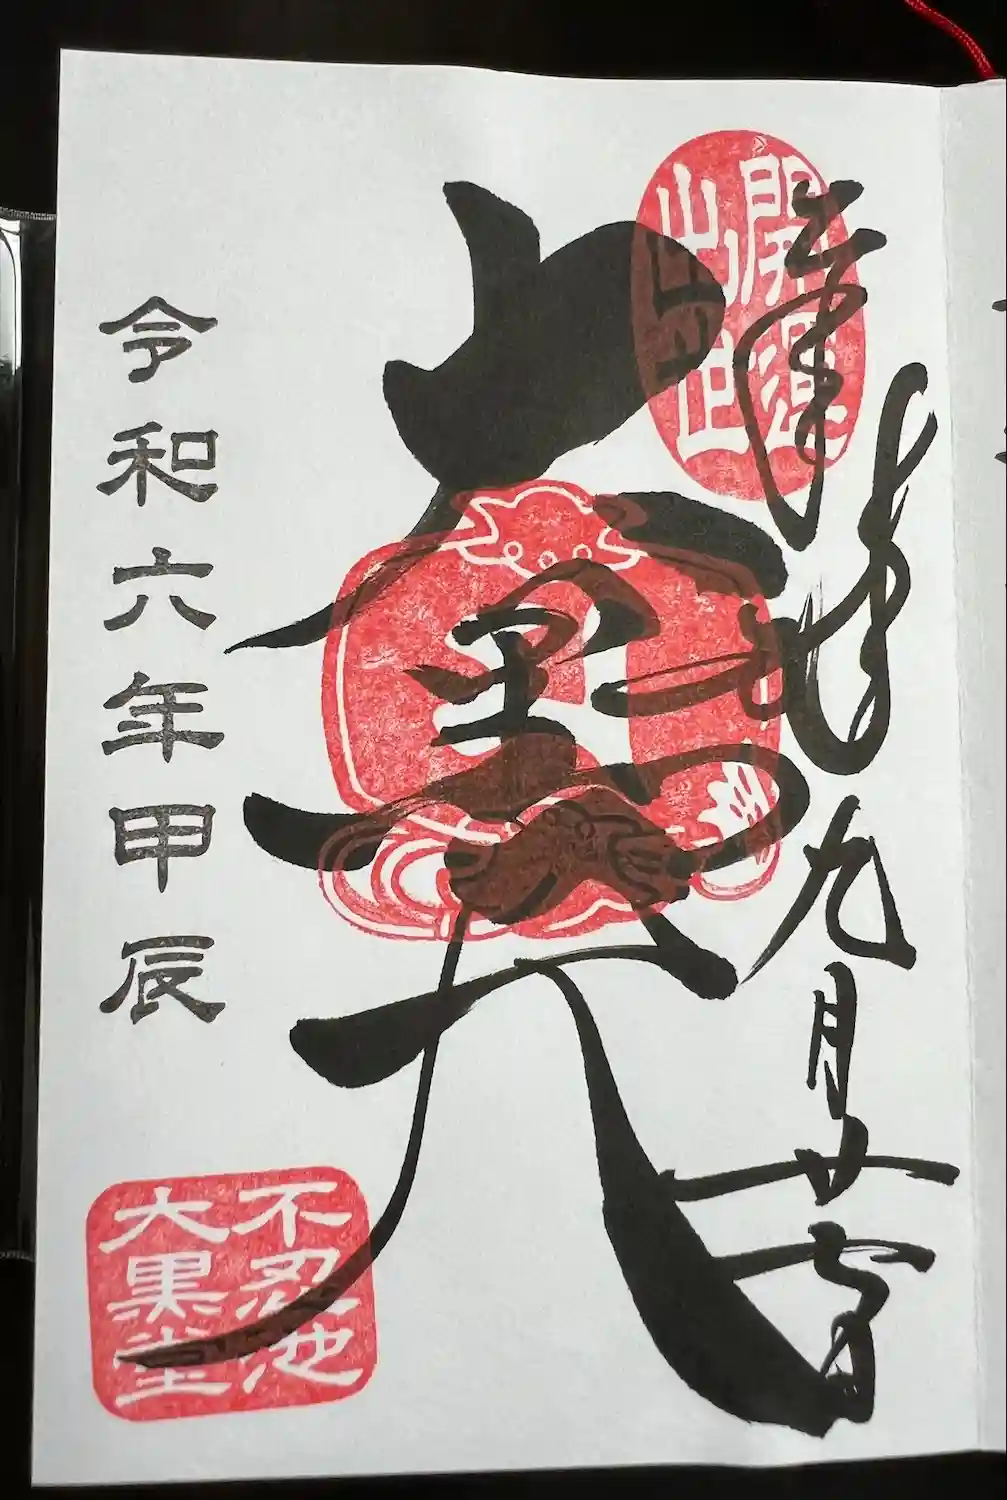 奉拝
九月廿
開運
出世
大黒天
令和六年甲辰
不忍池
大黒堂